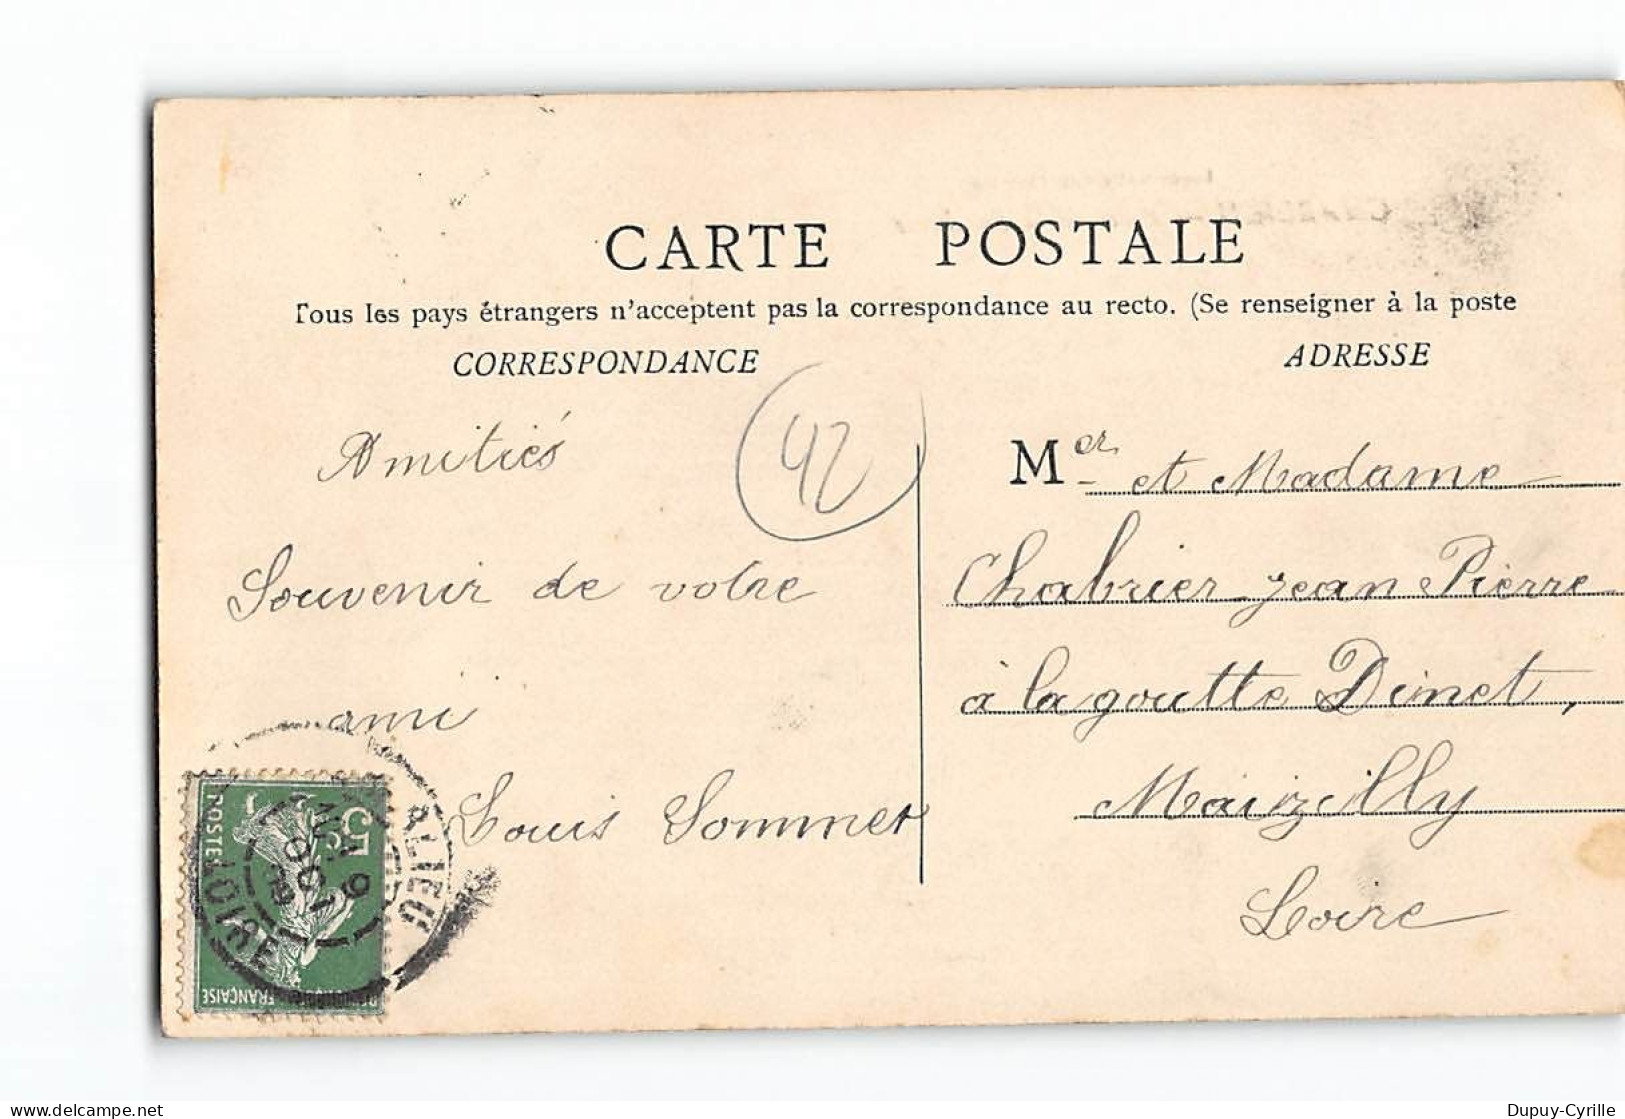 CARTE POSTALE
Tous les pays étrangers n'acceptent pas la correspondance au recto. (Se renseigner à la poste
CORRESPONDANCE
ADRESSE
42
Amitiés
Souvenir de votre
ami
Louis Sommet
Mer et Madame
Chabrier Jean Pierre
à la goutte Dinet,
Maizilly
Loire
POSTES
5c
FRANÇAISE
LOIRE
Dupuy-Cyrille